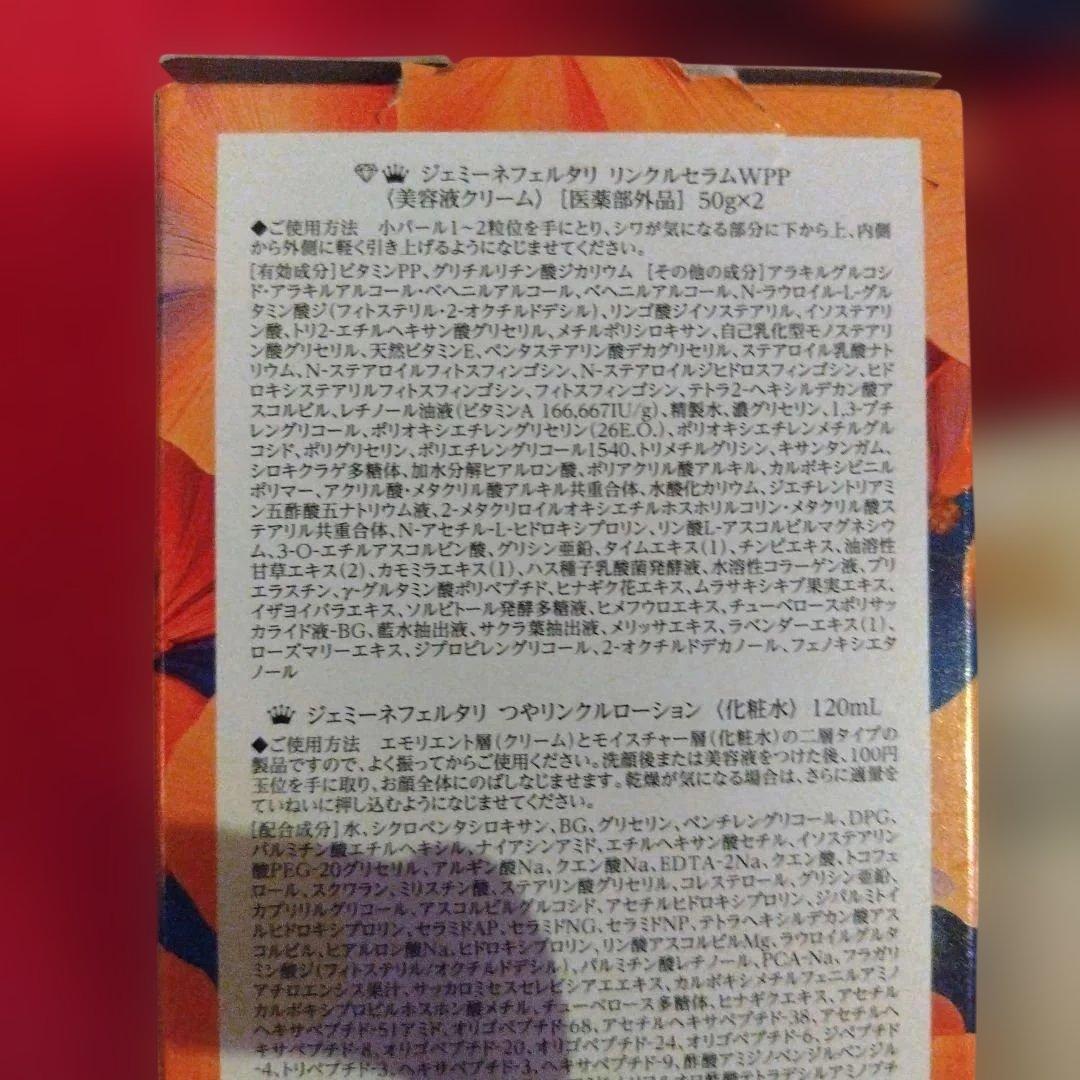 ジェミーネフェルタリ リンクルセラムWPP
〈美容液クリーム〉［医薬部外品］ 50g×2
◆ご使用方法 小パール1~2粒位を手にとり、シワが気になる部分に下から上、内側
から外側に軽く引き上げるようになじませてください。
[有効成分]ビタミンPP、グリチルリチン酸ジカリウム [その他の成分]アラキルグルコシ
ド・アラキルアルコール・ベヘニルアルコール、ベヘニルアルコール、N-ラウロイル-L-グル
タミン酸ジ(フィトステリル・2-オクチルドデシル)、リンゴ酸ジイソステアリル、イソステアリ
ン酸、トリ2-エチルヘキサン酸グリセリル、メチルポリシロキサン、自己乳化型モノステアリ
ン酸グリセリル、天然ビタミンE、ペンタステアリン酸デカグリセリル、ステアロイル乳酸ナト
リウム、N-ステアロイルフィトスフィンゴシン、N-ステアロイルジヒドロスフィンゴシン、ヒド
ロキシステアリルフィトスフィンゴシン、フィトスフィンゴシン、テトラ2-ヘキシルデカン酸ア
スコルビル、レチノール油液(ビタミンA 166,667IU/g)、精製水、濃グリセリン、1,3-ブチ
レングリコール、ポリオキシエチレングリセリン(26E.O.)、ポリオキシエチレンメチルグル
コシド、ポリグリセリン、ポリエチレングリコール1540、トリメチルグリシン、キサンタンガム、
シロキクラゲ多糖体、加水分解ヒアルロン酸、ポリアクリル酸アルキル、カルボキシビニル
ポリマー、アクリル酸・メタクリル酸アルキル共重合体、水酸化カリウム、ジエチレントリアミ
ン五酢酸五ナトリウム液、2-メタクリロイルオキシエチルホスホリルコリン・メタクリル酸ス
テアリル共重合体、N-アセチル-L-ヒドロキシプロリン、リン酸L-アスコルビルマグネシウ
ム、3-O-エチルアスコルビン酸、グリシン亜鉛、タイムエキス(1)、チンピエキス、油溶性
甘草エキス(2)、カモミラエキス(1)、ハス種子乳酸菌発酵液、水溶性コラーゲン液、プリ
エラスチン、γ-グルタミン酸ポリペプチド、ヒナギク花エキス、ムラサキシキブ果実エキス、
イザヨイバラエキス、ソルビトール発酵多糖液、ヒメフウロエキス、チューベロースポリサッ
カライド液-BG、藍水抽出液、サクラ葉抽出液、メリッサエキス、ラベンダーエキス(1)、
ローズマリーエキス、ジプロピレングリコール、2-オクチルドデカノール、フェノキシエタ
ノール
ジェミーネフェルタリ つやリンクルローション 〈化粧水〉 120mL
◆ご使用方法 エモリエント層(クリーム)とモイスチャー層(化粧水)の二層タイプの
製品ですので、よく振ってからご使用ください。洗顔後または美容液をつけた後、100円
玉位を手に取り、お顔全体にのばしなじませます。乾燥が気になる場合は、さらに適量を
ていねいに押し込むようになじませてください。
[配合成分]水、シクロペンタシロキサン、BG、グリセリン、ペンチレングリコール、DPG、
パルミチン酸エチルヘキシル、ナイアシンアミド、エチルヘキサン酸セチル、イソステアリン
酸PEG-20グリセリル、アルギン酸Na、クエン酸Na、EDTA-2Na、クエン酸、トコフェ
ロール、スクワラン、ミリスチン酸、ステアリン酸グリセリル、コレステロール、グリシン亜鉛、
カプリリルグリコール、アスコルビルグルコシド、アセチルヒドロキシプロリン、ジパルミトイ
ルヒドロキシプロリン、セラミドAP、セラミドNG、セラミドNP、テトラヘキシルデカン酸アス
コルビル、ヒアルロン酸Na、ヒドロキシプロリン、リン酸アスコルビルMg、ラウロイルグルタ
ミン酸ジ(フィトステリル/オクチルドデシル)、パルミチン酸レチノール、PCA-Na、フラガリ
アチロエンシス果汁、サッカロミセスセレビシアエエキス、カルボキシメチルフェニルアミノ
カルボキシプロピルホスホン酸メチル、チューベロース多糖体、ヒナギクエキス、アセチル
ヘキサペプチド-51アミド、オリゴペプチド-68、アセチルヘキサペプチド-38、アセチルヘ
キサペプチド-8、オリゴペプチド-20、オリゴペプチド-24、オリゴペプチド-6、ジペプチド
-4、トリペプチド-3、ヘキサペプチド-3、ヘキサペプチド-9、酢酸アミジノベンジルベンジル